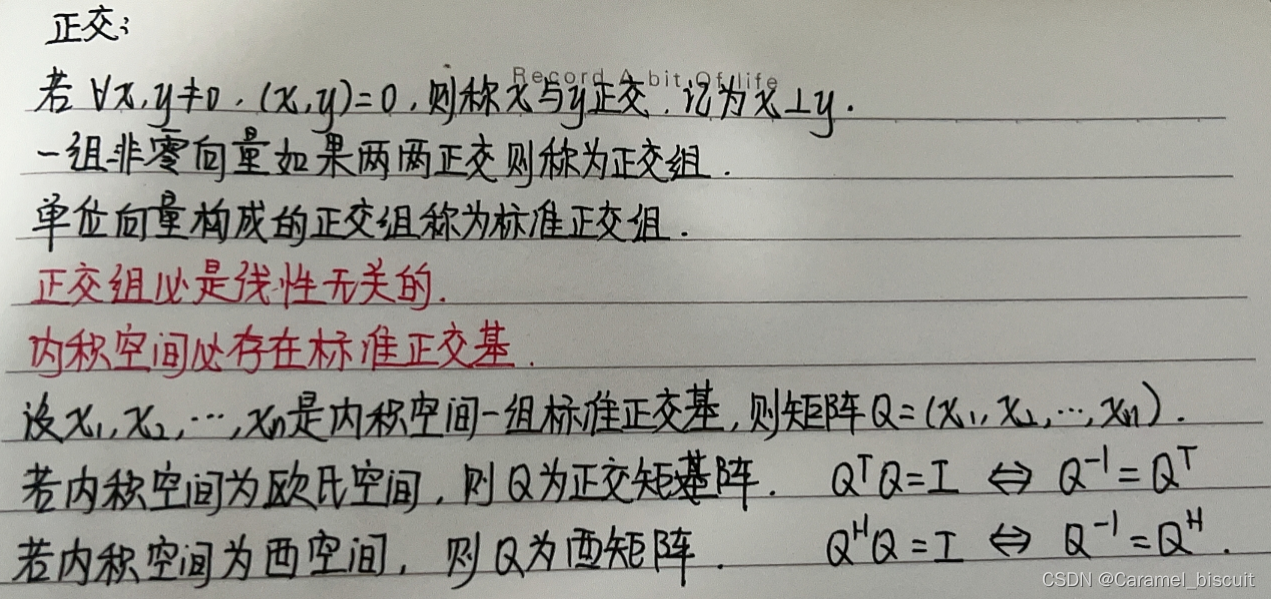 正交:
Record A bit Of life
若∀x,y≠0,(x,y)=0,则称x与y正交,记为x⊥y.
一组非零向量如果两两正交则称为正交组.
单位向量构成的正交组称为标准正交组.
正交组必是线性无关的.
内积空间必存在标准正交基.
设x₁,x₂,…,xₙ是内积空间一组标准正交基,则矩阵Q=(x₁,x₂,…,xₙ).
若内积空间为欧氏空间,则Q为正交矩阵. QᵀQ=I ⇔ Q⁻¹=Qᵀ
若内积空间为酉空间,则Q为酉矩阵. QᴴQ=I ⇔ Q⁻¹=Qᴴ.
CSDN @Caramel_biscuit